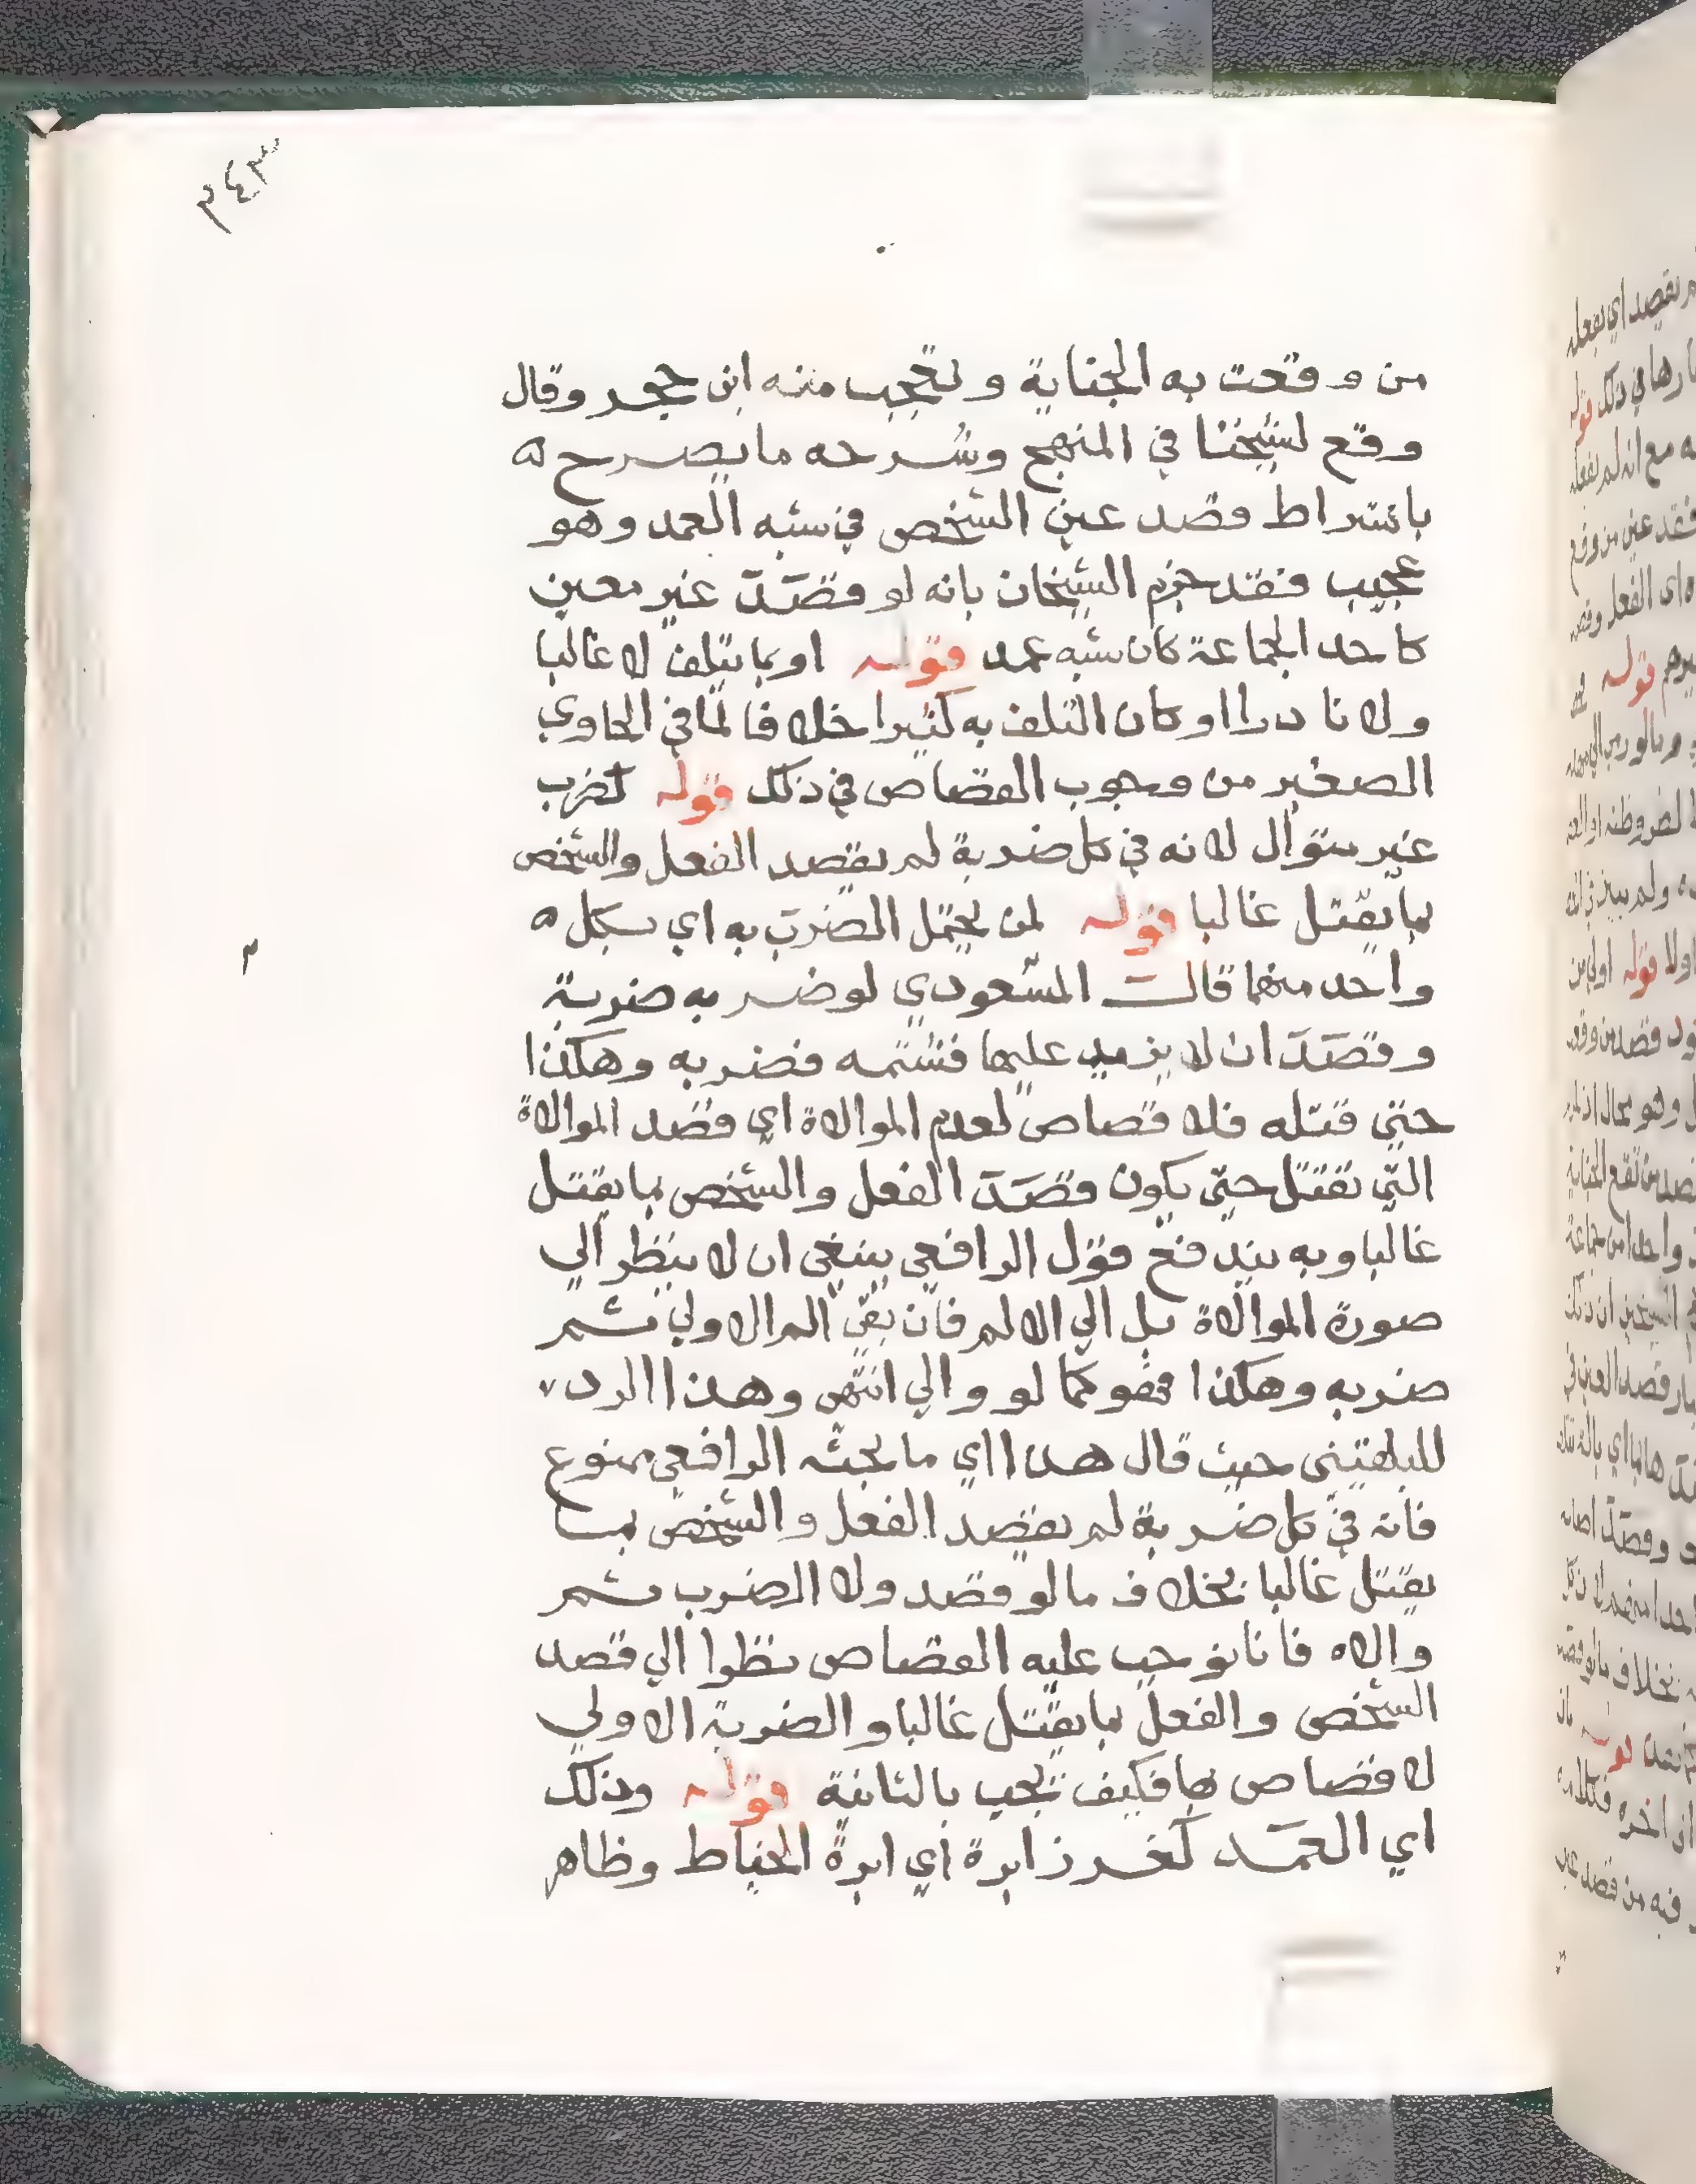 ٣٤٣
من وقعت به الجناية وتعجب منه ابن حجر وقال
وقع لشيخنا في المنهج وشرحه ما يصرح ه
باشتراط قصد عين الشخص في شبه العمد وهو
عجيب فقد جزم الشيخان بانه لو قصد غير معين
كاحد الجماعة كان شبه عمد قوله او بما يتلف لا غالبا
ولا نادرا او كان التلف به كثيرا خلافا لما في الحاوي
الصغير من وجوب القصاص في ذلك قوله كضرب
غير متوال لانه في كل ضربة لم يقصد الفعل والشخص
بما يقتل غالبا قوله لمن يحتمل الضرب به اي بكل ه
واحد منهما قالت المسعودي لو ضربه ضربة
وقصد ان لا يزيد عليها فشتمه فضربه وهكذا
حتى قتله فلا قصاص لعدم الموالاة اي قصد الموالاة
التي تقتل حتى يكون قصد الفعل والشخص بما يقتل
غالبا وبه يندفع قول الرافعي ينبغي ان لا ينظر الي
صورة الموالاة بل الي الالم فان بقي الم الاولي ثم
ضربه وهكذا فهو كما لو والي انتهى وهذا الرد
للبلقيني حيث قال هذا اي ما بحثه الرافعي ممنوع
فانه في كل ضربة لم يقصد الفعل والشخص بما
يقتل غالبا بخلاف ما لو قصد ولا الضرب ثم
والاه فانا نوجب عليه القصاص نظرا الي قصد
الشخص والفعل بما يقتل غالبا والضربة الاولي
لا قصاص بها فكيف تجب بالثانية قوله وذلك
اي العمد كغرز ابرة اي ابرة الخياط وظاهر